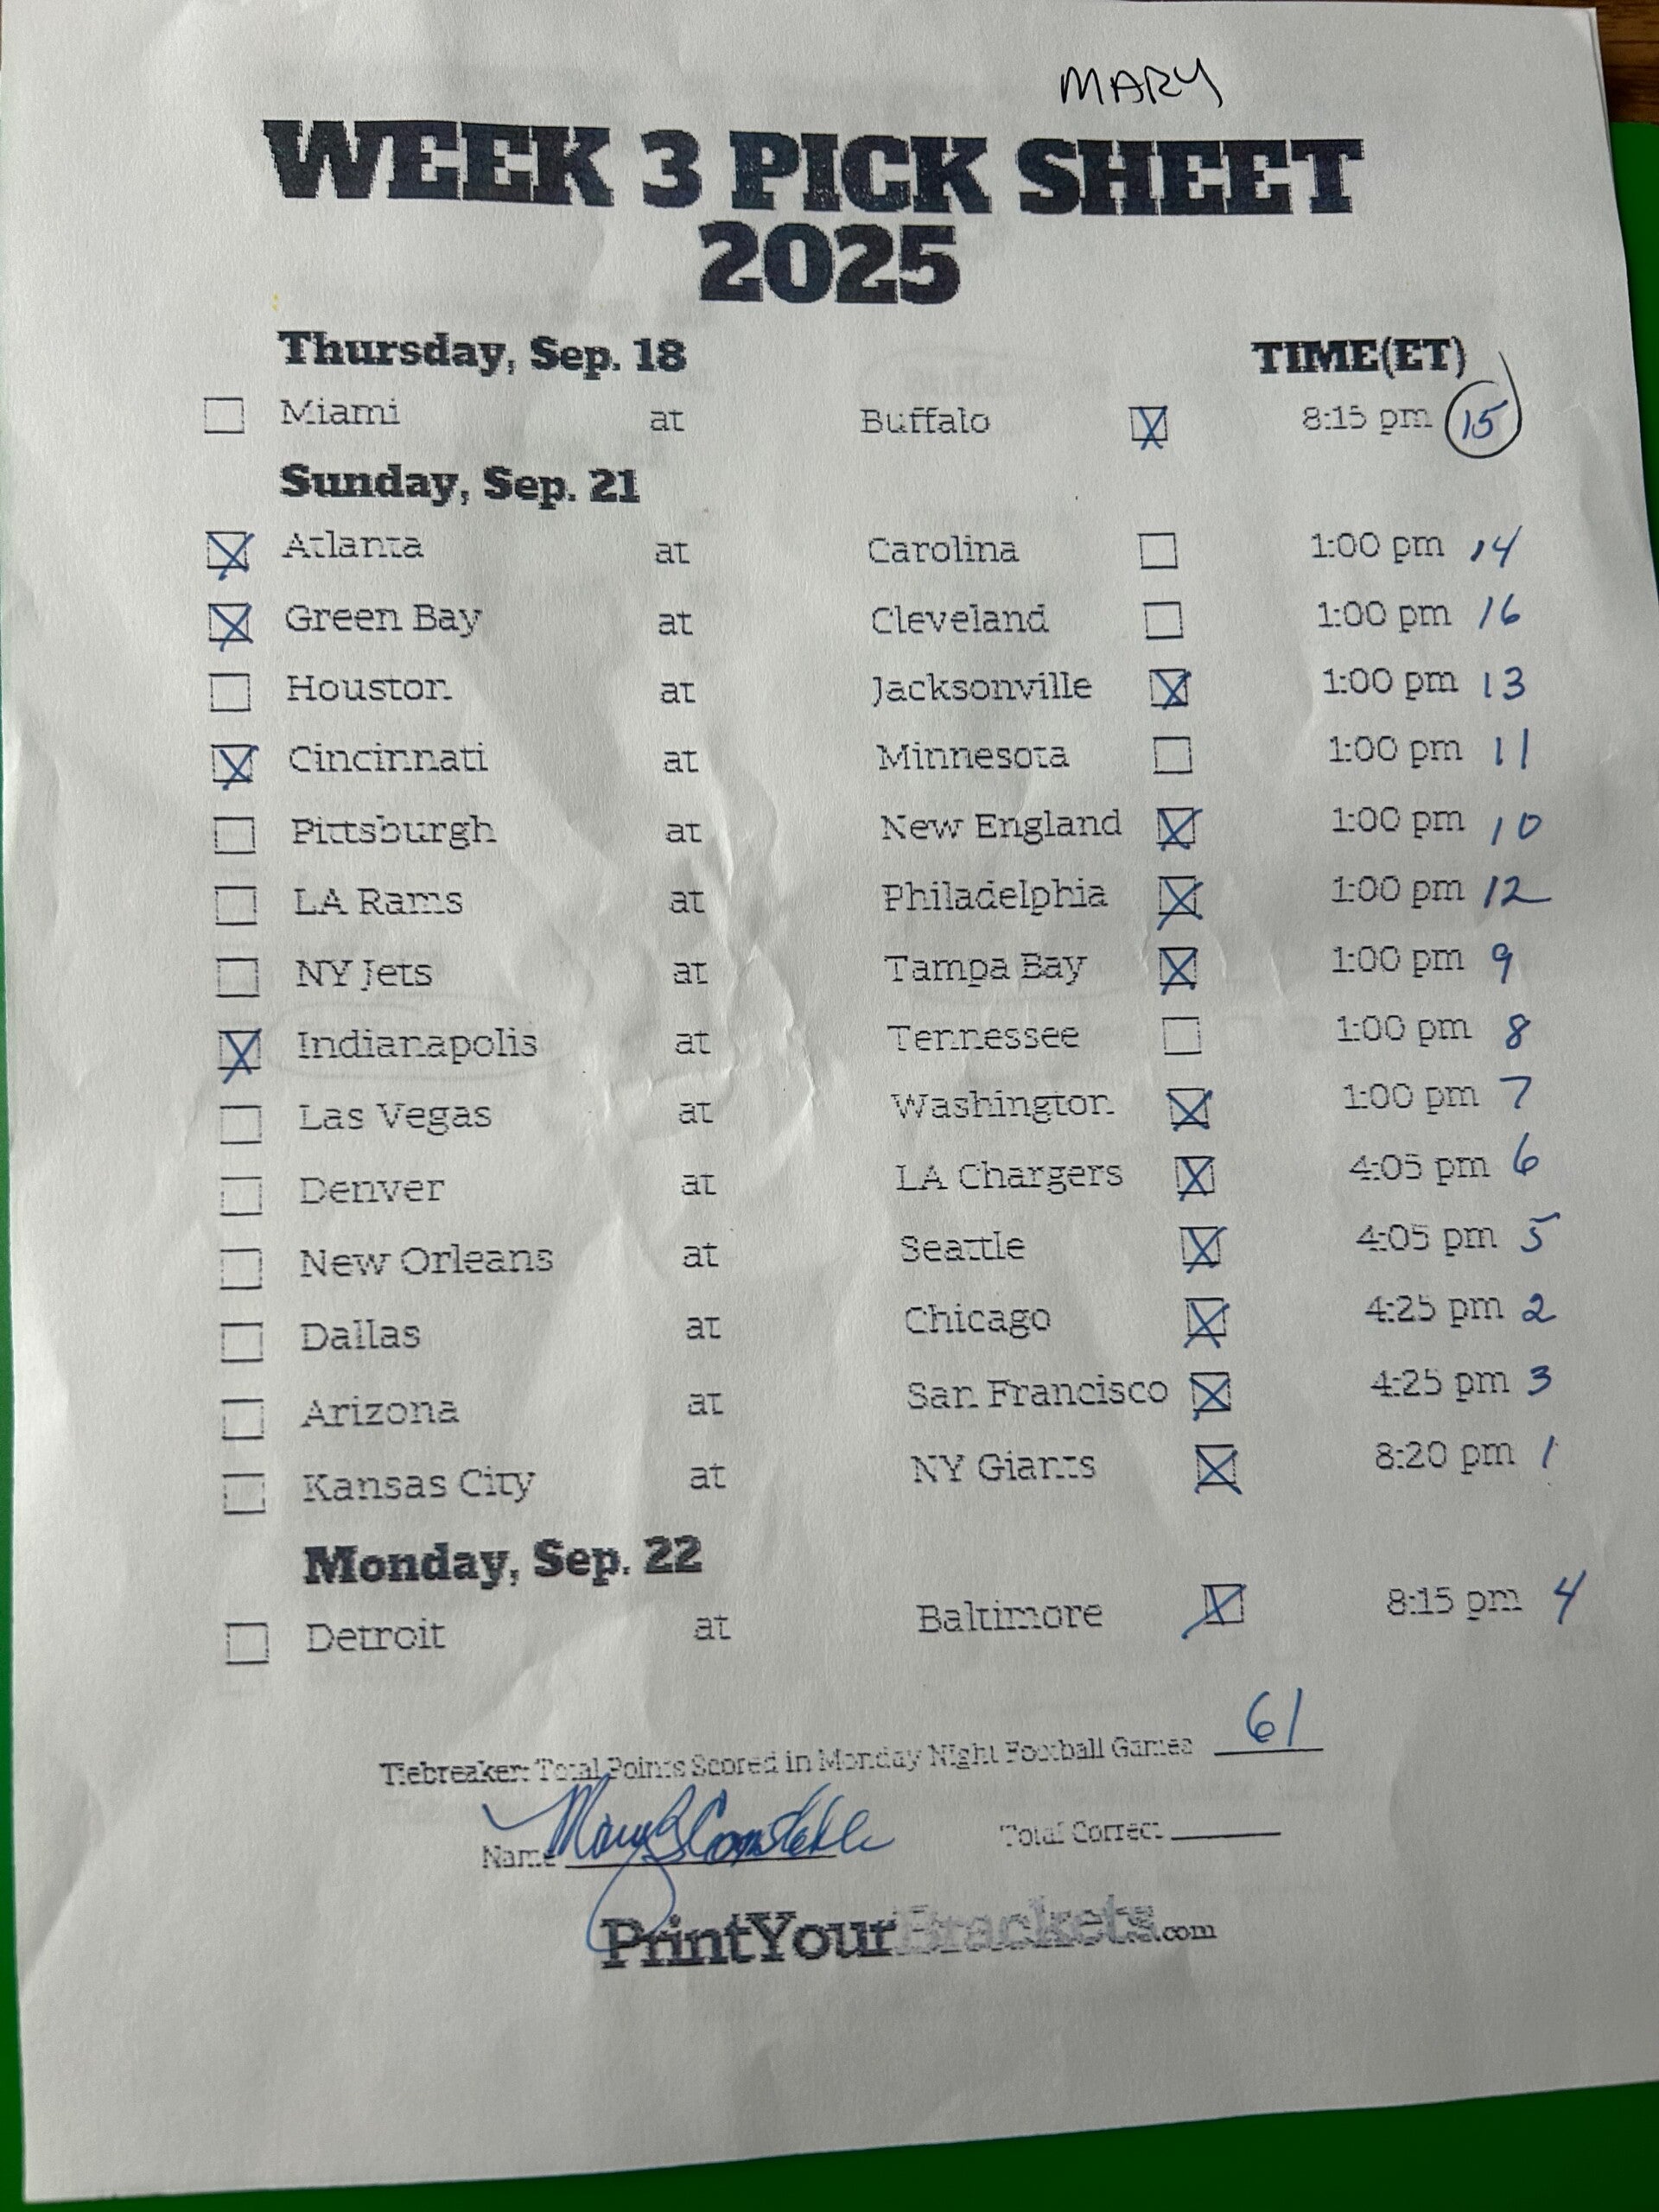 MARY
WEEK 3 PICK SHEET
2025
Thursday, Sep. 18 TIME(ET)
Miami at Buffalo 8:15 pm 15
Sunday, Sep. 21
Atlanta at Carolina 1:00 pm 14
Green Bay at Cleveland 1:00 pm 16
Houston at Jacksonville 1:00 pm 13
Cincinnati at Minnesota 1:00 pm 11
Pittsburgh at New England 1:00 pm 10
LA Rams at Philadelphia 1:00 pm 12
NY Jets at Tampa Bay 1:00 pm 9
Indianapolis at Tennessee 1:00 pm 8
Las Vegas at Washington 1:00 pm 7
Denver at LA Chargers 4:05 pm 6
New Orleans at Seattle 4:05 pm 5
Dallas at Chicago 4:25 pm 2
Arizona at San Francisco 4:25 pm 3
Kansas City at NY Giants 8:20 pm 1
Monday, Sep. 22
Detroit at Baltimore 8:15 pm 4
Tiebreaker: Total Points Scored in Monday Night Football Games 61
Name Mary Total Correct
PrintYourBrackets.com